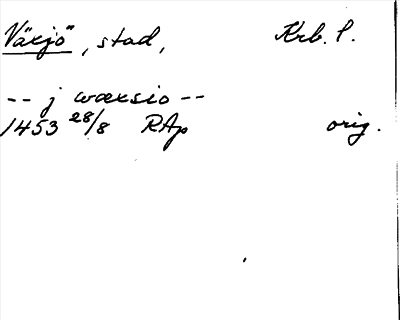 Växjö, stad, Krb. l.
-- j wæxsio --
1453 28/8 RAp orig.